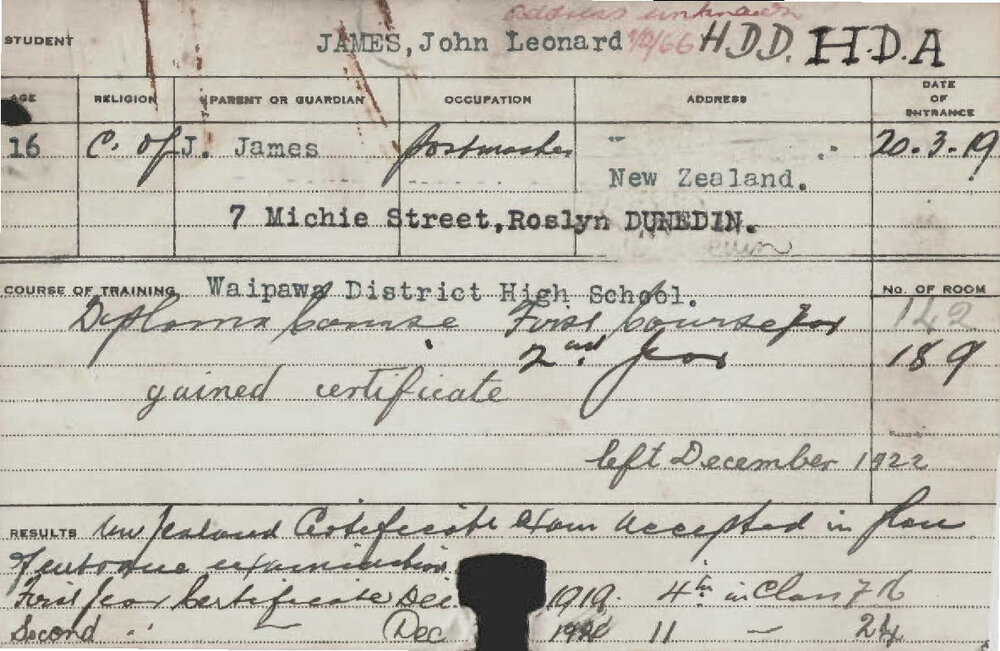 address unknown
STUDENT JAMES, John Leonard 9/9/66 H.D.D. H.D.A
AGE RELIGION PARENT OR GUARDIAN OCCUPATION ADDRESS DATE OF ENTRANCE
16 C. of J. James postmaster " 20.3.19
New Zealand.
7 Michie Street, Roslyn DUNEDIN.
COURSE OF TRAINING Waipawa District High School. No. OF ROOM
Diploma Course First Course Year 142
2nd. year 189
gained certificate
left December 1922
RESULTS New Zealand Certificate Exam accepted in place
of entrance examination
First year Certificate Dec 1919. 4th in Class 76
Second " – Dec 11 – 24